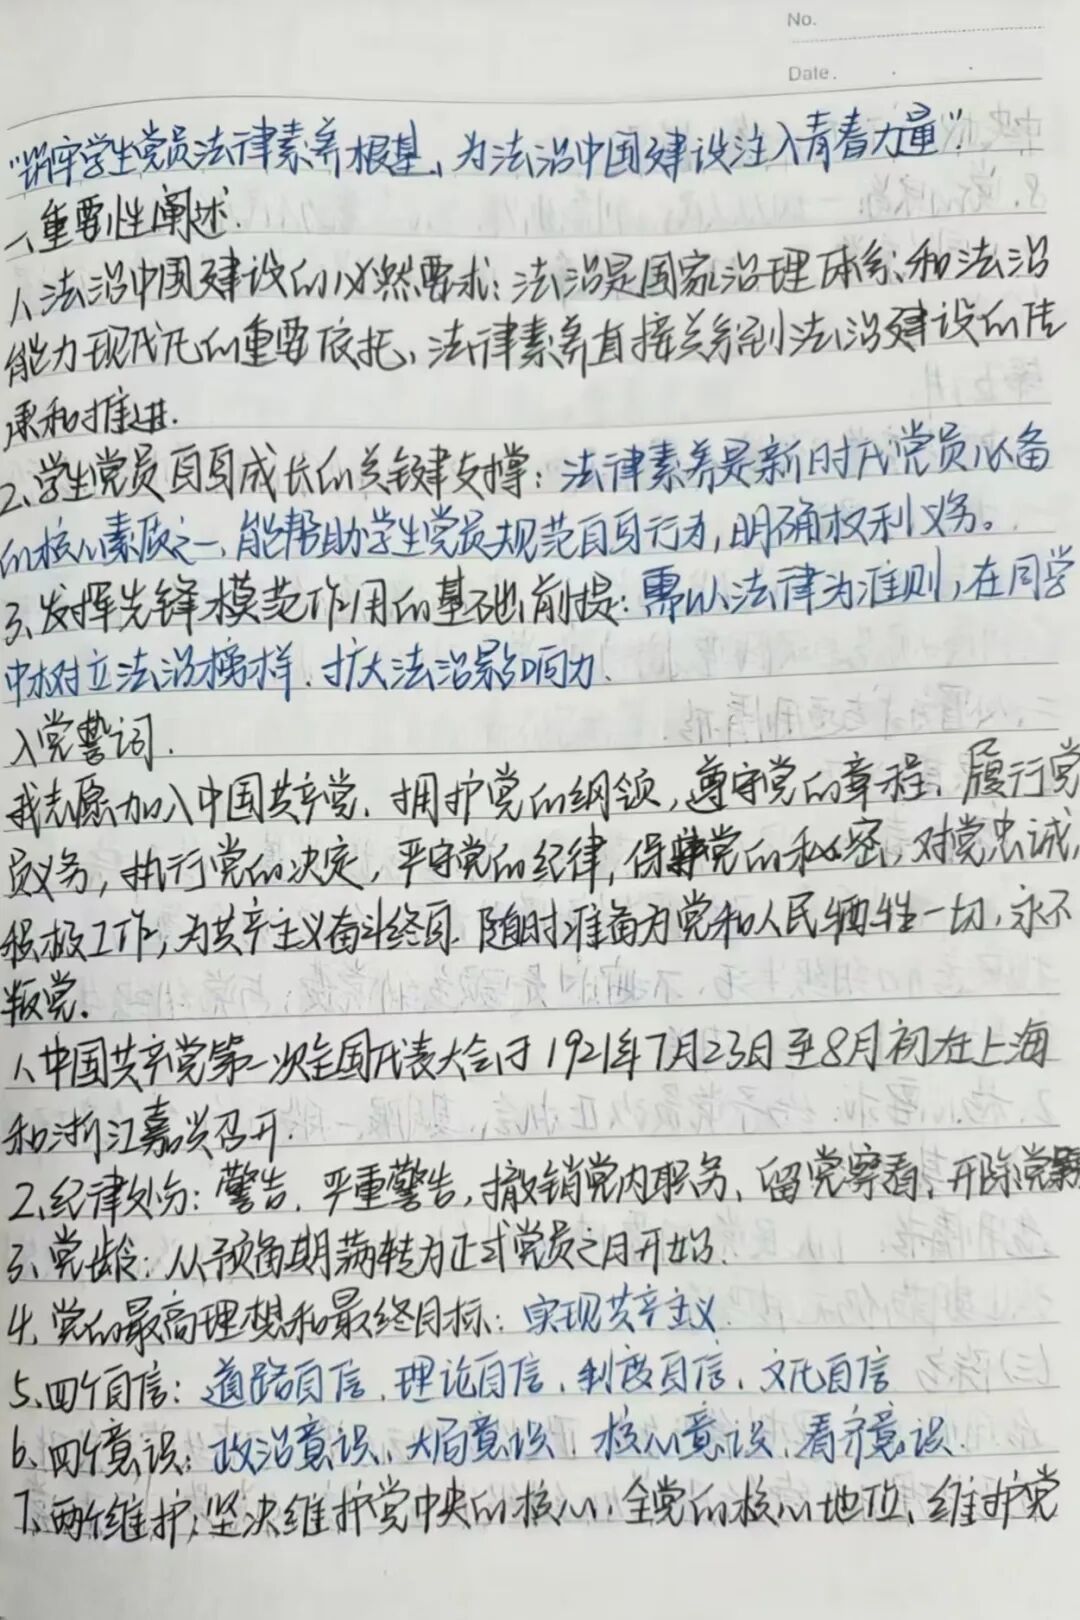 No.
Date.
"筑牢学生党员法律素养根基、为法治中国建设注入青春力量"
一、重要性阐述.
1、法治中国建设的必然要求：法治是国家治理体系和法治
能力现代化的重要依托、法律素养直接关系到法治建设的传
承和推进.
2、学生党员自身成长的关键支撑：法律素养是新时代党员必备
的核心素质之一、能帮助学生党员规范自身行为，明确权利义务。
3、发挥先锋模范作用的基础前提：需以法律为准则，在同学
中树立法治榜样、扩大法治影响力.
入党誓词.
我志愿加入中国共产党、拥护党的纲领，遵守党的章程、履行党
员义务，执行党的决定，严守党的纪律，保守党的秘密，对党忠诚，
积极工作，为共产主义奋斗终身.随时准备为党和人民牺牲一切，永不
叛党。
1、中国共产党第一次全国代表大会于1921年7月23日至8月初在上海
和浙江嘉兴召开.
2、纪律处分：警告、严重警告，撤销党内职务、留党察看、开除党籍
3、党龄：从预备期满转为正式党员之日开始.
4、党的最高理想和最终目标：实现共产主义.
5、四个自信：道路自信、理论自信、制度自信、文化自信
6、四个意识：政治意识、大局意识、核心意识、看齐意识.
7、两个维护：坚决维护党中央的核心、全党的核心地位、维护党